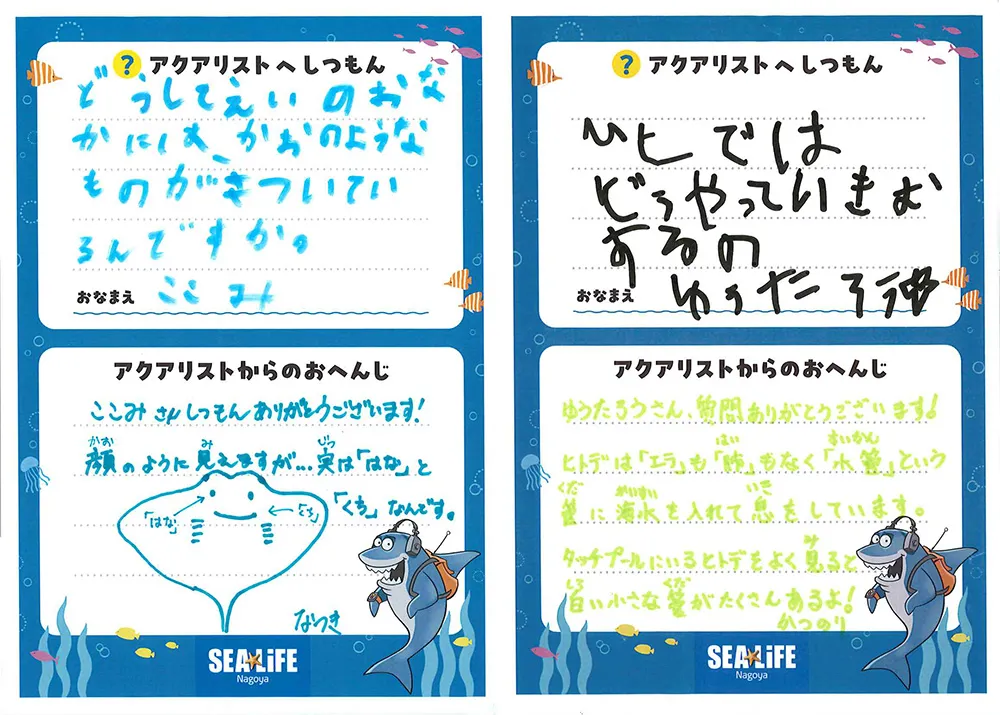 ? アクアリストへしつもん
どうしてえいのおな
かには、かおのような
ものがきついてい
るんですか。
おなまえ ここみ
アクアリストからのおへんじ
ここみさんしつもんありがとうございます!
かお み じつ
顔のように見えますが…実は「はな」と
「くち」なんです。
「はな」
「くち」
なつき
SEA LiFE
Nagoya
? アクアリストへしつもん
ひとでは
どうやっていきお
するの
おなまえ ゆうたろう
アクアリストからのおへんじ
ゆうたろうさん、質問ありがとうございます!
はい すいかん
ヒトデは「エラ」も「肺」もなく「水管」という
くだ かいすい いき
管に海水を入れて息をしています。
み
タッチプールにいるヒトデをよく見ると
しろ くだ
白い小さな管がたくさんあるよ!
かつのり
SEA LiFE
Nagoya